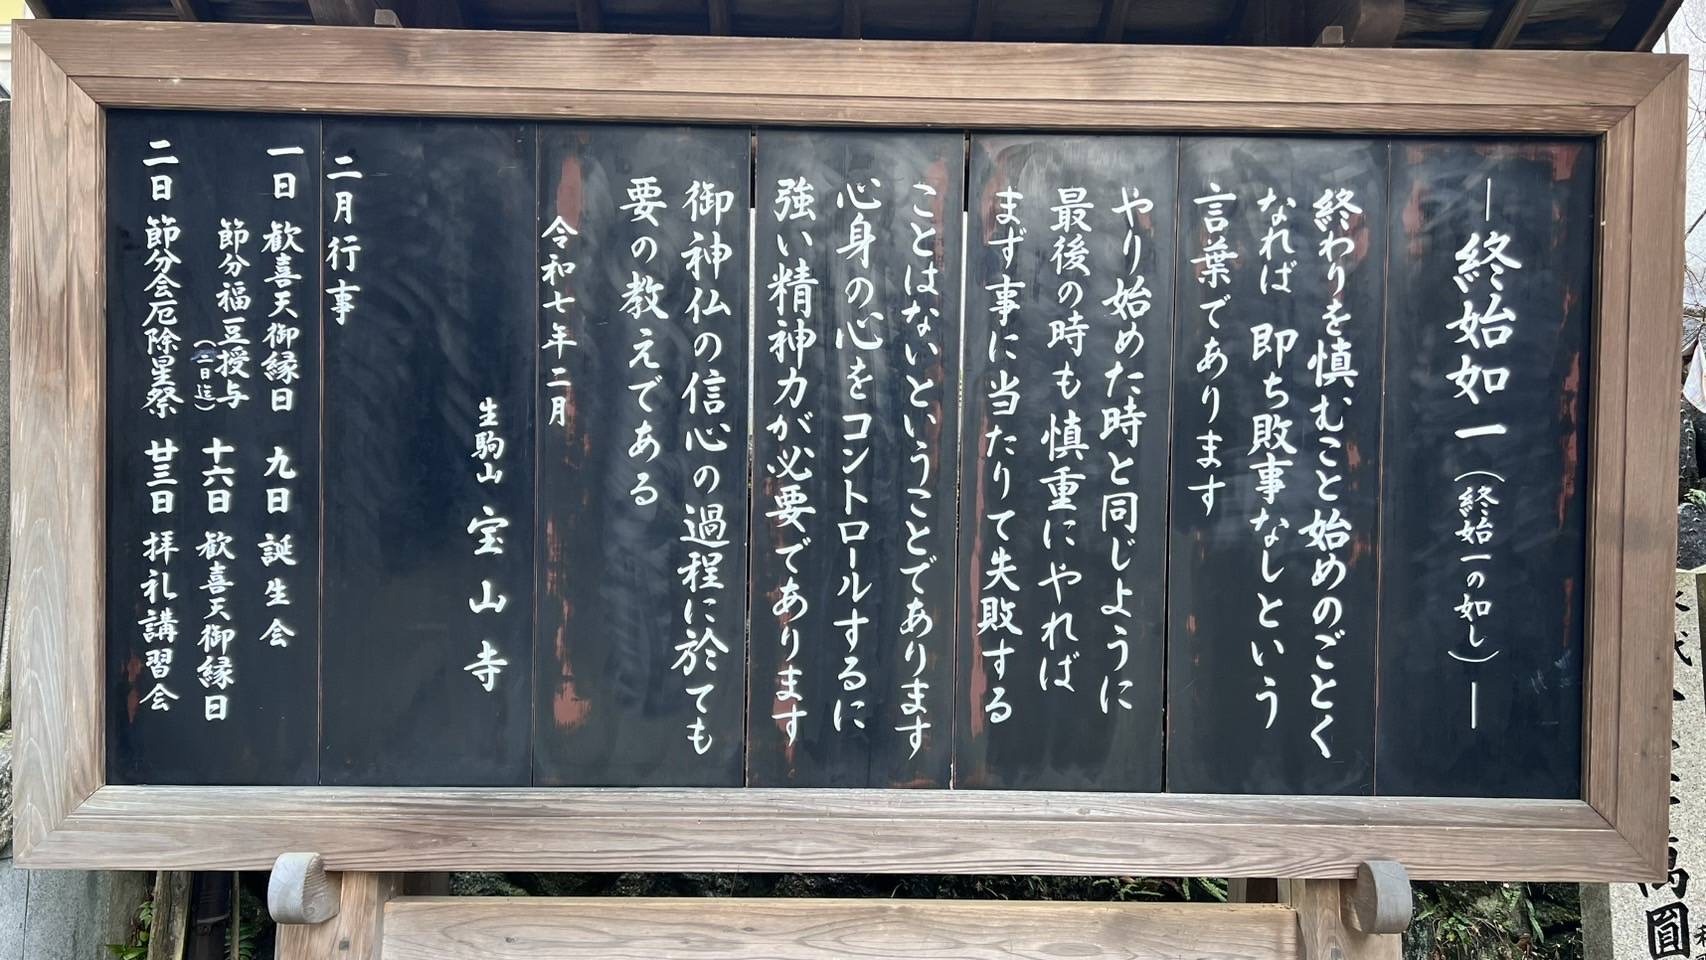 ―終始如一（終始一の如し）―
終わりを慎むこと始めのごとく
なれば 即ち敗事なしという
言葉であります
やり始めた時と同じように
最後の時も慎重にやれば
まず事に当たりて失敗する
ことはないということであります
心身の心をコントロールするに
強い精神力が必要であります
御神仏の信心の過程に於ても
要の教えである
令和七年二月
生駒山 宝山寺
二月行事
一日 歓喜天御縁日
節分福豆授与
（二日迄）
二日 節分会厄除星祭
九日 誕生会
十六日 歓喜天御縁日
廿三日 拝礼講習会
萬
圓